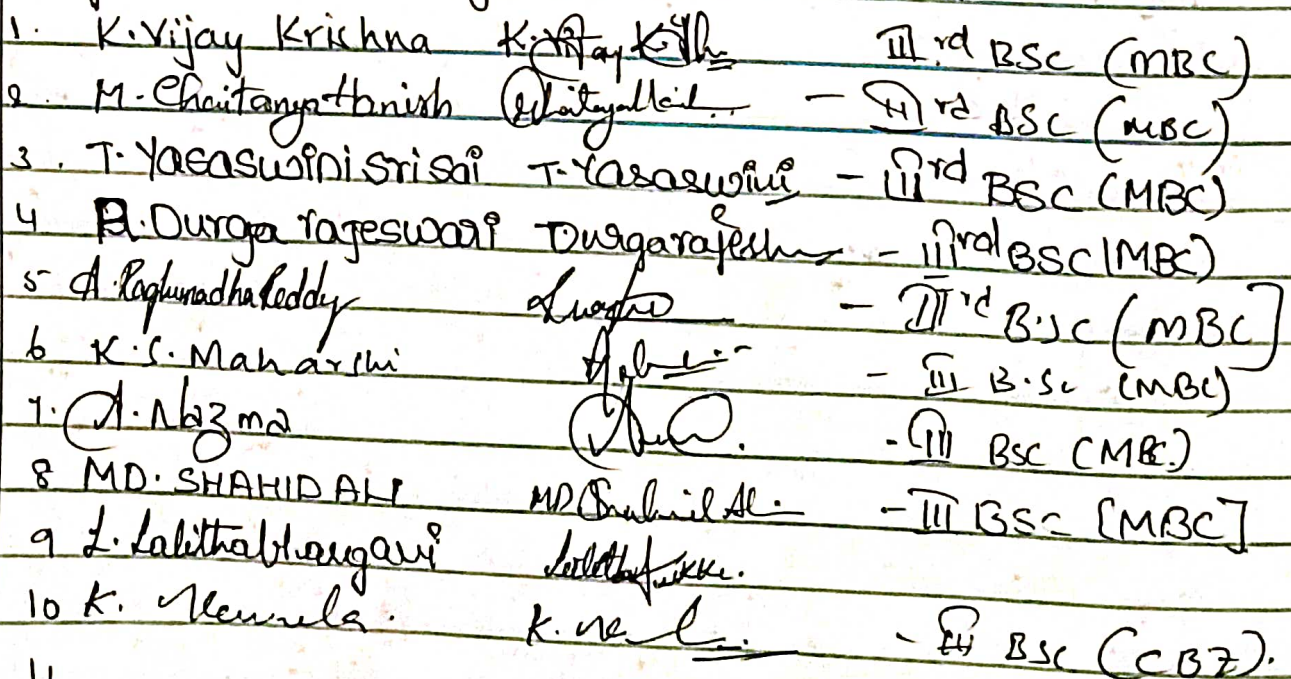 1. K. Vijay Krishna K. Vijay III rd BSc (MBC)
2. M. Chaitanya thanish - III rd BSC (MBC)
3. T. Yasaswini Sri Sai T. Yasaswini - III rd BSC (MBC)
4 Durga rajeswari Durgarajesh - III rd BSC (MBC)
5 A. Raghunadha Reddy - III rd B.SC (MBC]
6 K.S. Maharshi - III B.Sc (MBC)
7. A. Nazma - III BSC (MBC)
8 MD. SHAHID ALI MD - III BSC [MBC]
9 L. Lalithabhargavi
10 K. - III BSC (CBZ).
11